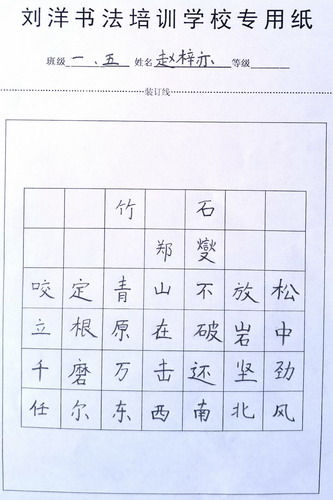 刘洋书法培训学校专用纸
班级 一、五 姓名 赵梓亦 等级
装订线
竹 石
郑 燮
咬 定 青 山 不 放 松
立 根 原 在 破 岩 中
千 磨 万 击 还 坚 劲
任 尔 东 西 南 北 风